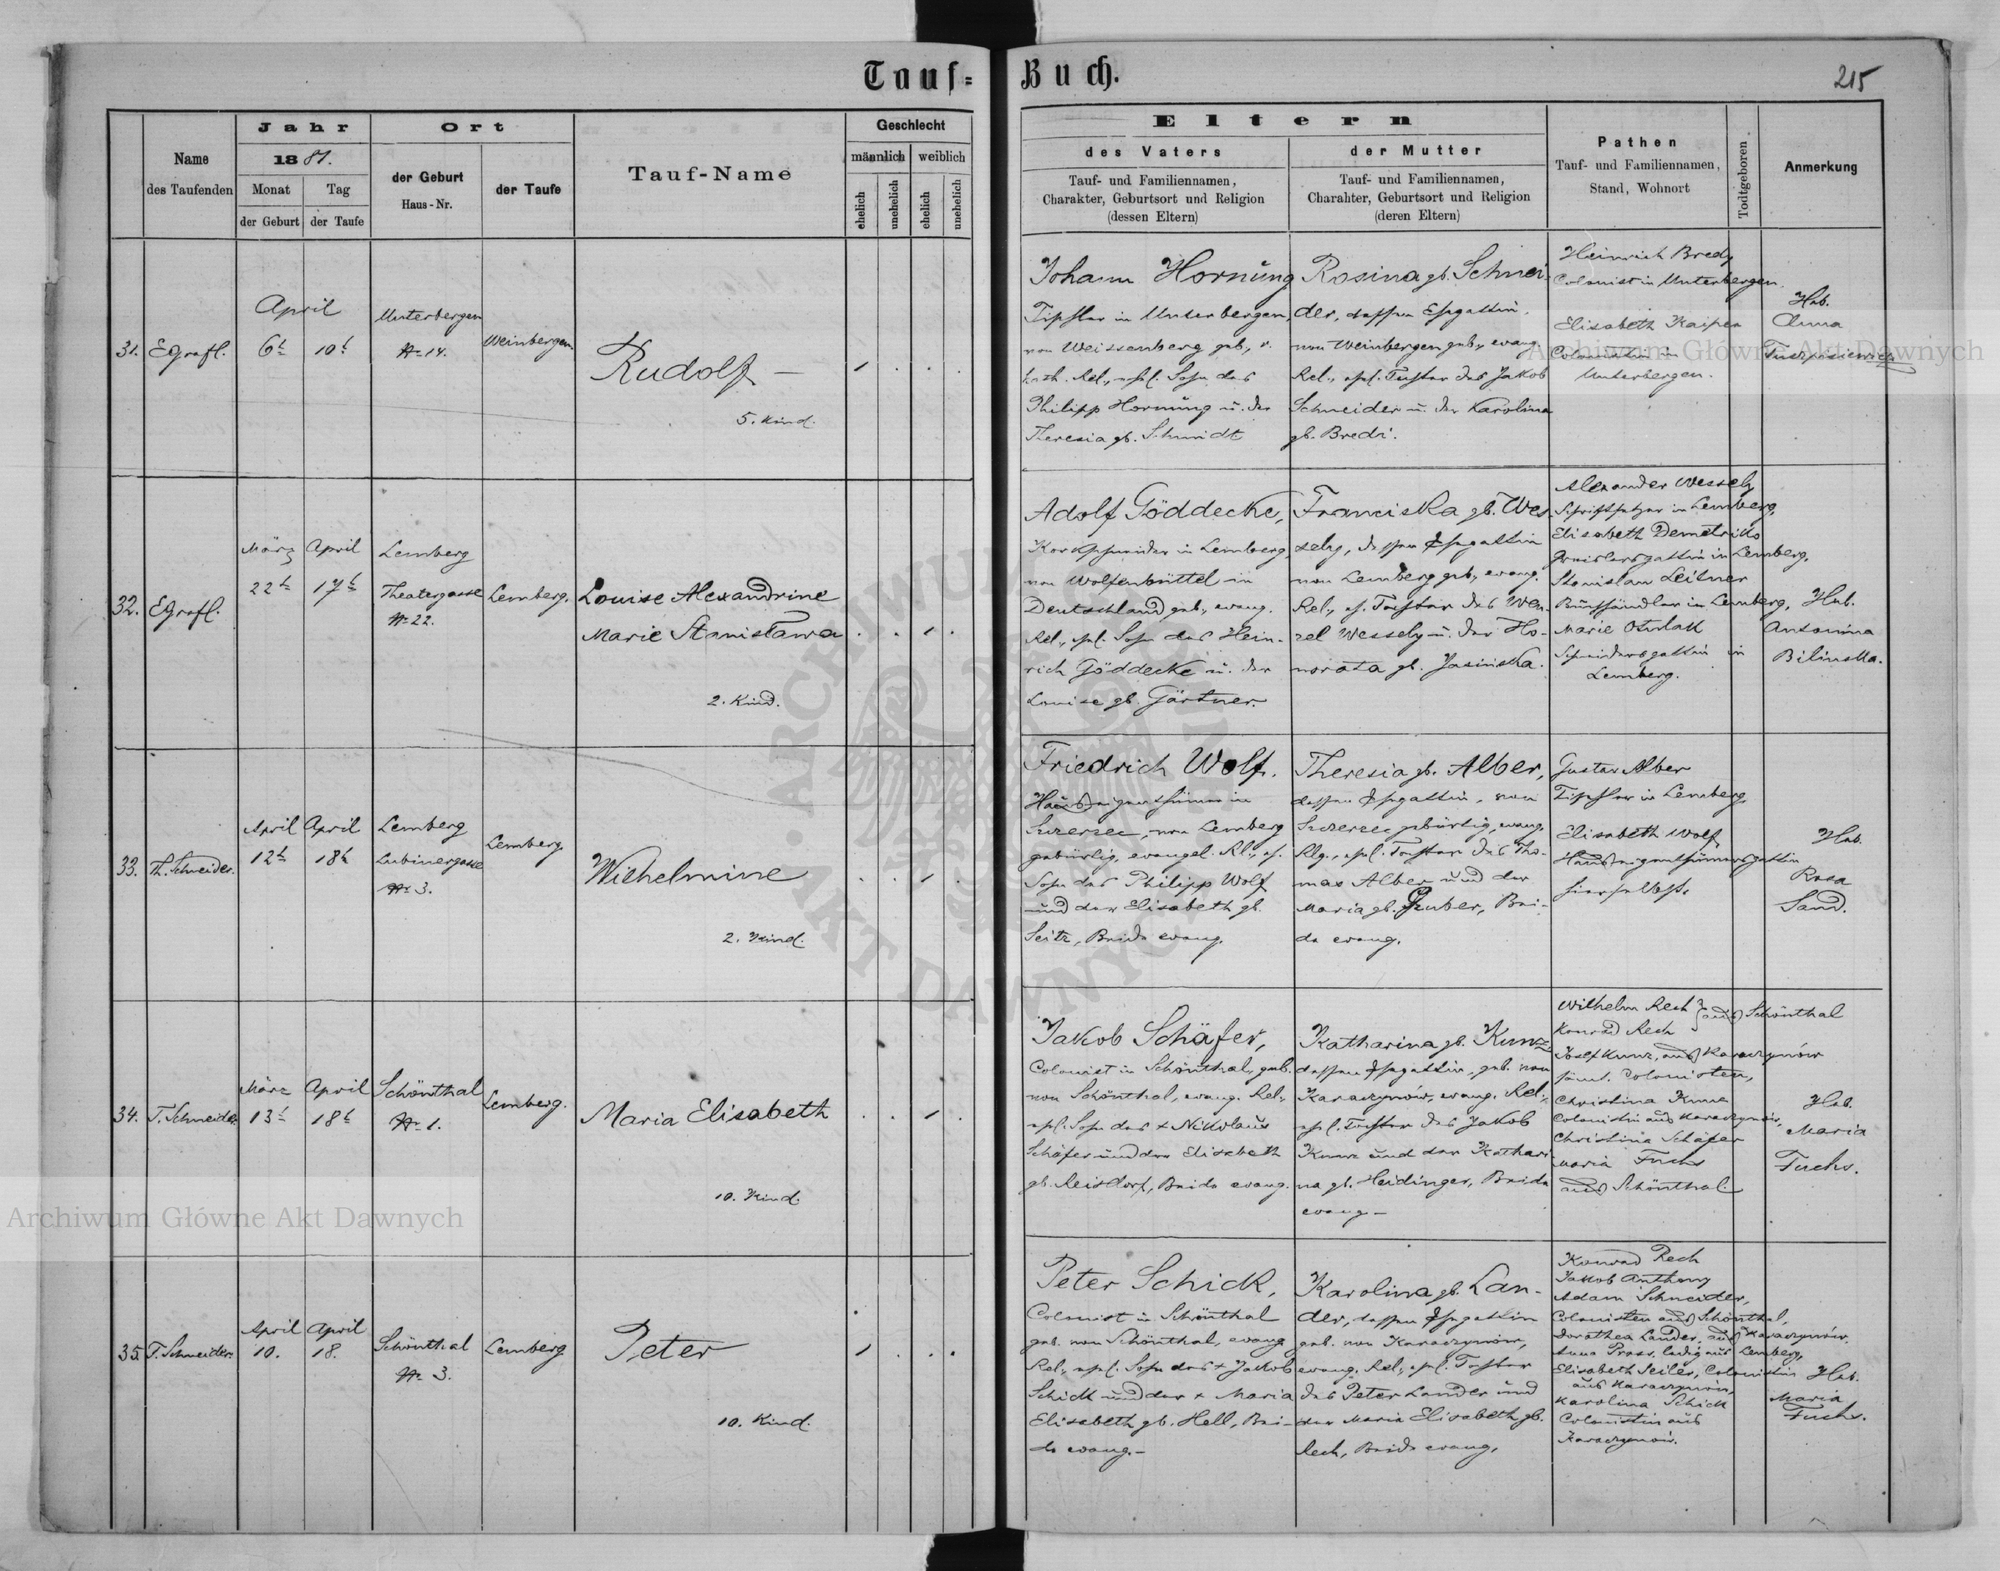 Tauf-Buch.
215
Name des Taufenden
Jahr
1881.
Monat
Tag
der Geburt
der Taufe
Ort
der Geburt
Haus-Nr.
der Taufe
Tauf-Name
Geschlecht
männlich
weiblich
ehelich
unehelich
ehelich
unehelich
Eltern
des Vaters
Tauf- und Familiennamen,
Charakter, Geburtsort und Religion
(dessen Eltern)
der Mutter
Tauf- und Familiennamen,
Charakter, Geburtsort und Religion
(deren Eltern)
Pathen
Tauf- und Familiennamen,
Stand, Wohnort
Todtgeboren
Anmerkung
31.
EGrafl.
April
6t
10t
Unterbergen
Nr 14.
Weinbergen
Rudolf
5. Kind.
Johann Hornung
Tischler in Unterbergen,
von Weissenberg geb., r.
kath. Rel., ehel. Sohn des
Philipp Hornung u. der
Theresia gb. Schmidt
Rosina gb. Schnei-
der, dessen Ehegattin,
von Weinbergen geb., evang.
Rel., ehel. Tochter des Jakob
Schneider u. der Karolina
gb. Bredi.
Heinrich Bredy
Colonist in Unterbergen.
Elisabeth Kaiper
Colonistin in
Unterbergen.
Heb.
Anna
32.
EGrafl.
März April
22t 17t
Lemberg
Theatergasse
Nr 22.
Lemberg.
Louise Alexandrine
Marie Stanisława
2. Kind.
Adolf Göddecke,
Korkschneider in Lemberg,
von Wolfenbüttel in
Deutschland geb., evang.
Rel., ehel. Sohn des Hein-
rich Göddecke u. der
Louise gb. Gärtner.
Franciska gb. Wes-
sely, dessen Ehegattin
von Lemberg geb., evang.
Rel., eh. Tochter des Wen-
zel Wessely u. der Ho-
norata gb. Jasinska.
Alexander Wessely
Schriftsetzer in Lemberg,
Elisabeth Demetriko
in Lemberg,
Stanislau Leitner
Buchhändler in Lemberg,
Marie
Schneidersgattin in
Lemberg.
Heb.
Antonina
Bilinska.
33.
Th. Schneider.
April April
12t 18t
Lemberg
Lubinergasse
Nr 3.
Lemberg
Wilhelmine
2. Kind.
Friedrich Wolf.
Hauseigenthümer in
von Lemberg
gebürtig, evangel. Rl., eh.
Sohn des Philipp Wolf
und der Elisabeth gb.
Seitz, Beide evang.
Theresia gb. Alber,
dessen Ehegattin, von
gebürtig, evang.
Rlg., ehel. Tochter des Tho-
mas Alber und der
Maria gb. Gruber, Bei-
de evang.
Gustav Alber
Tischler in Lemberg,
Elisabeth Wolf
Hauseigenthümersgattin
hierselbst.
Heb.
Rosa
Sand.
34.
T. Schneider
März April
13t 18t
Schönthal
Nr 1.
Lemberg.
Maria Elisabeth
10. Kind.
Jakob Schäfer,
Colonist in Schönthal, geb.
von Schönthal, evang. Rel.,
ehl. Sohn des + Nikolaus
Schäfer und der Elisabeth
gb. Reisdorf, Beide evang.
Katharina gb. Kunz
dessen Ehegattin, geb. von
Karaczynów, evang. Rel.,
ehl. Tochter des Jakob
Kunz und der Kathari-
na gb. Heidinger, Beide
evang.
Wilhelm Rech
Konrad Rech } aus Schönthal
Josef Kunz, aus Karaczynów
sämt. Colonisten,
Christina Kunz
Colonistin aus Karaczynów,
Christina Schäfer
Maria Fuchs
aus Schönthal.
Heb.
Maria
Fuchs.
35.
T. Schneider.
April April
10. 18.
Schönthal
Nr 3.
Lemberg
Peter
10. Kind.
Peter Schick,
Colonist in Schönthal
geb. von Schönthal, evang
Rel., ehel. Sohn des + Jakob
Schick und der + Maria
Elisabeth gb. Hell, Bei-
de evang.
Karolina gb. Lan-
der, dessen Ehegattin
geb. von Karaczynów,
evang. Rel., ehl. Tochter
des Peter Lander und
der Maria Elisabeth gb.
Rech, Beide evang.
Konrad Rech
Jakob Anthony
Adam Schneider,
Colonisten aus Schönthal,
Dorothea Lander, aus Karaczynów.
Anna Prass, ledig aus Lemberg,
Elisabeth Seiler, Colonistin
aus Karaczynów,
Karolina Schick
Colonistin aus
Karaczynów.
Heb.
Maria
Fuchs.
Archiwum Główne Akt Dawnych
Archiwum Główne Akt Dawnych
ARCHIWUM GŁÓWNE AKT DAWNYCH